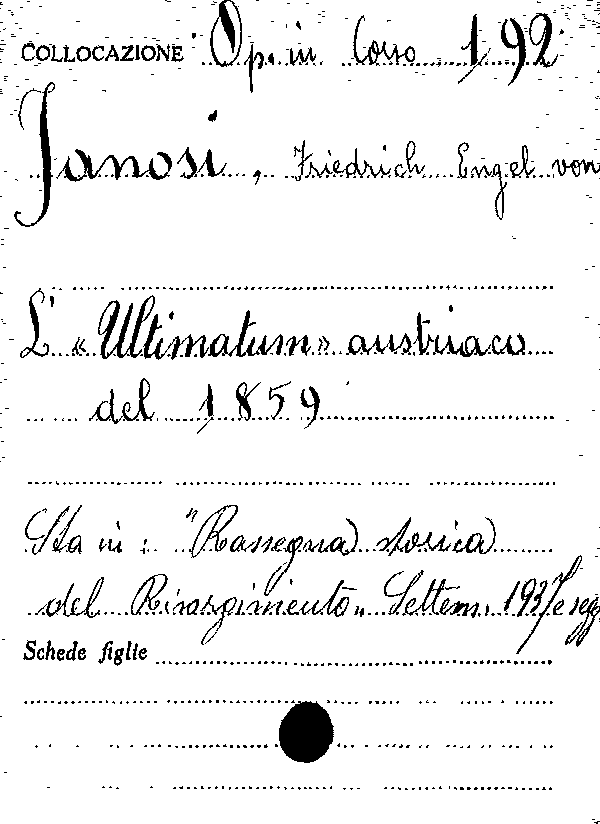 COLLOCAZIONE Op. in Corso 192
Janosi, Friedrich Engel von
L' « Ultimatum » austriaco
del 1859
Sta in : "Rassegna storica
del Risorgimento" Settem. 1937 e segg
Schede figlie